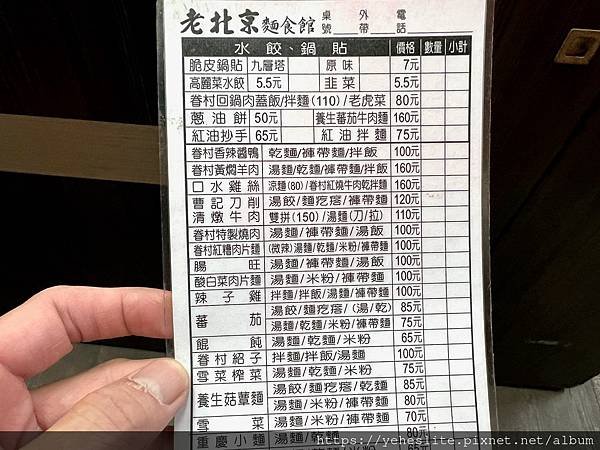 老北京麵食館 桌號 外帶 電話
水餃、鍋貼 價格 數量 小計
脆皮鍋貼 九層塔 原味 7元
高麗菜水餃 5.5元 韭菜 5.5元
眷村回鍋肉蓋飯/拌麵(110)/老虎菜 80元
蔥油餅 50元 養生蕃茄牛肉麵 160元
紅油抄手 65元 紅油拌麵 75元
眷村香辣醬鴨 乾麵/褲帶麵/拌飯 100元
眷村黃燜羊肉 湯麵/乾麵/褲帶麵/拌飯 160元
口水雞絲 涼麵(80)/眷村紅燒牛肉乾拌麵 160元
曹記刀削 湯餃/麵疙瘩/褲帶麵 120元
清燉牛肉 雙拼(150)/湯麵(刀/拉) 110元
眷村特製燒肉 湯麵/褲帶麵/湯飯 100元
眷村紅糟肉片麵 (微辣)湯麵/乾麵/米粉/褲帶麵 100元
腸旺 湯麵/褲帶麵/湯飯 100元
酸白菜肉片麵 湯麵/米粉/褲帶麵 100元
辣子雞 拌麵/拌飯/湯麵/褲帶麵 100元
蕃茄 湯餃/麵疙瘩/(湯/乾) 85元
湯麵/乾麵/米粉/褲帶麵 75元
餛飩 湯麵/乾麵/米粉 65元
眷村紹子 拌麵/拌飯/湯麵 100元
雪菜榨菜 湯麵/乾麵/米粉 75元
養生菇蕈麵 湯餃/麵疙瘩/乾麵 85元
湯麵/米粉/褲帶麵 80元
雪菜 湯麵/米粉/褲帶麵 70元
重慶小麵 湯麵/乾麵 80元
https://yeheslite.pixnet.net/album